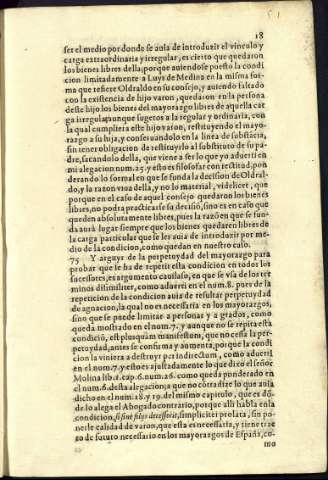 18
ser el medio por donde se auia de introduzir el vinculo y
carga extraordinaria y irregular, es cierto que quedaron
los bienes libres della, porque auiendose puesto la condi
cion limitadamente a Luys de Medina en la misma for-
ma que refiere Oldraldo en su consejo, y auiendo faltado
con la existencia de hijo varon, quedaron en la persona
deste hijo los bienes del mayorazgo libres de aquella car
ga irregular, aunque sugetos a la regular y ordinaria, con
la qual cumpliera este hijo varon, restituyendo el mayo-
razgo a su hija, y conseruandolo en la linea de substãcia,
sin tener obligacion de restituyrlo al substituto de su pa-
dre, sacandolo della, que viene a ser lo que yo aduerti en
mi alegacion num. 25. y esto es filosofar con rectitud, pon
derando lo formal en que se funda la decision de Oldral-
do, y la razon viua della, y no lo material, videlicet, que
porque en el caso de aquel consejo quedaron los bienes
libres, no podra practicarse su decisiõ, sino es en caso que
queden absolutamente libres, pues la razõ en que se fun-
da aurà lugar siempre que los bienes quedaren libres de
la carga particular que se les auia de introduzir por me-
dio de la condicion, como quedan en nuestro caso.
75 Y arguyr de la perpetuydad del mayorazgo para
probar que se ha de repetir esta condicion en todos los
sucessores, es argumento cauiloso, en que se vsa de los ter
minos dissimiliter, como aduerti en el num. 8. pues de la
repeticion de la condicion auia de resultar perpetuydad
de agnacion, la qual no es necessaria en los mayorazgos,
sino que se puede limitar a personas y a grados, como
queda mostrado en el num. 7. y aunque no se repita esta
condiciõ, est plusquàm manifestum, que no cessa la per-
petuydad, antes se confirma y aumenta, porque la condi
cion la viniera a destruyr per indirectum, como aduerti
en el num. 7. y esto es ajustadamente lo que dixo el señor
Molina lib. 1. cap. 6. num. 26. como queda ponderado en
el num. 6. desta alegacion; a que no cõtradize lo que auia
dicho en el num. 18. y 19. del mismo capitulo, que es dõ-
de lo alega el Abogado contrario, porque alli habla en la
condicion, si sine filijs decesserit, simpliciter prolata, sin po-
nerle calidad de varon, que esta es necessaria, y tiene trac
to de futuro necessario en los mayorazgos de España, co-
mo